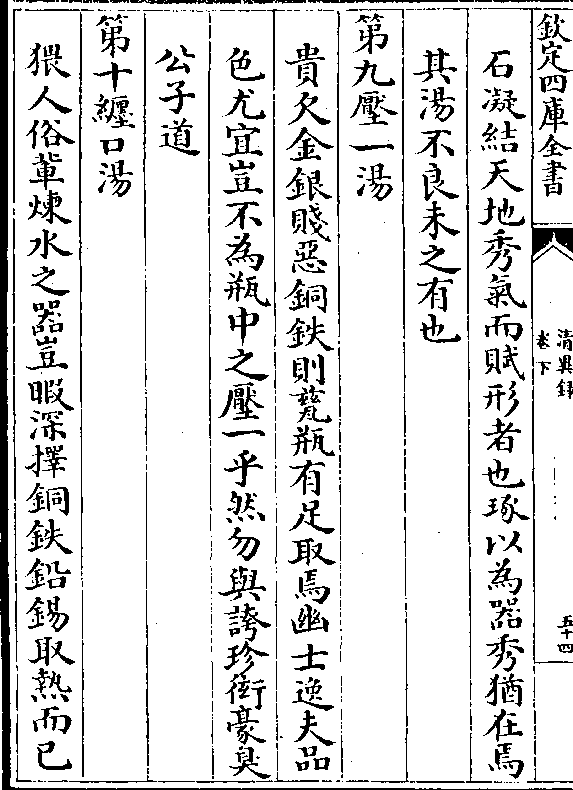 欽定四庫全書
清異録
卷下
五十四
石凝結天地秀氣而賦形者也琢以為器秀猶在焉
其湯不良未之有也
第九壓一湯
貴欠金銀賤惡銅鉄則甆瓶有足取焉幽士逸夫品
色尤宜豈不為瓶中之壓一乎然勿與誇珍衒豪臭
公子道
第十纒口湯
猥人俗軰煉水之器豈暇深擇銅鉄鉛錫取熱而已